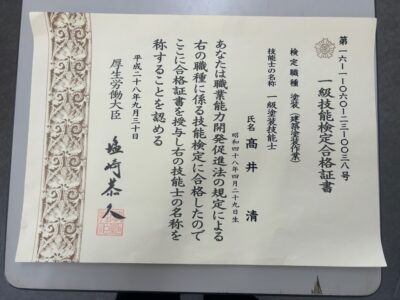 第一六-一-〇六〇-二三-〇〇三八号
一級技能検定合格証書
検定職種 塗装(建築塗装作業)
技能士の名称 一級塗装技能士
氏名 高井 清
昭和四十八年四月二十九日生
あなたは職業能力開発促進法の規定による
右の職種に係る技能検定に合格したので
ここに合格証書を授与し右の技能士の名称を
称することを認める
平成二十八年九月三十日
厚生労働大臣 塩崎恭久